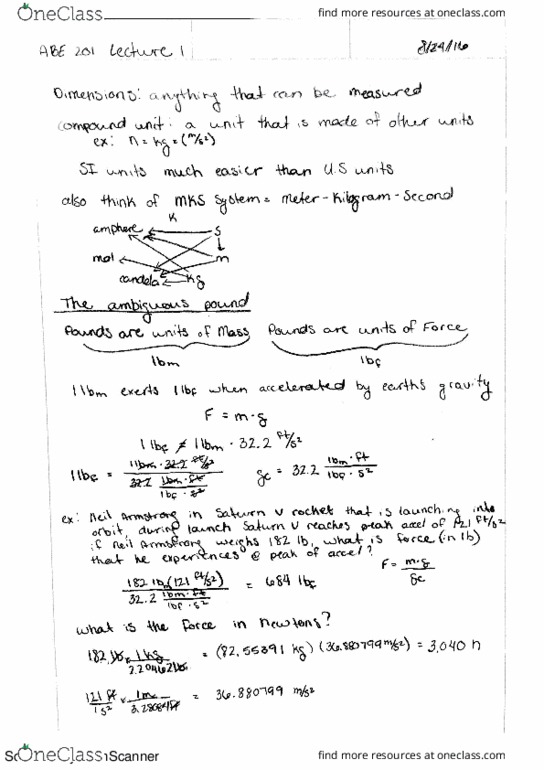 OneClass find more resources at oneclass.com
ABE 201 Lecture 1 8/24/16
Dimensions: anything that can be measured
compound unit: a unit that is made of other units
ex: n = kg = (m/s²)
SI units much easier than U.S units
also think of MKS system = meter - kilogram - second
K
amphere s
mol m
candela kg
The ambiguous pound
Pounds are units of Mass Pounds are units of Force
lbm lbf
1 lbm exerts 1 lbf when accelerated by earth's gravity
F = m·g
1 lbf ≠ 1 lbm · 32.2 ft/s²
1 lbf = 1 lbm · 32.2 ft/s² / 32.2 lbm·ft / lbf·s² gc = 32.2 lbm·ft / lbf·s²
ex: Neil Armstrong in Saturn V rocket that is launching into
orbit, during launch Saturn V reaches peak accel of 121 ft/s²
if Neil Armstrong weighs 182 lb, what is force (in lb)
that he experiences @ peak of accel?
F = m·g / gc
182 lb (121 ft/s²) / 32.2 lbm·ft / lbf·s² = 684 lbf
what is the force in newtons?
182 lb × 1 kg / 2.20462 lb = (82.55391 kg) (36.880799 m/s²) = 3,040 n
121 ft / 1 s² × 1m / 3.28084 ft = 36.880799 m/s²
OneClass Scanner find more resources at oneclass.com